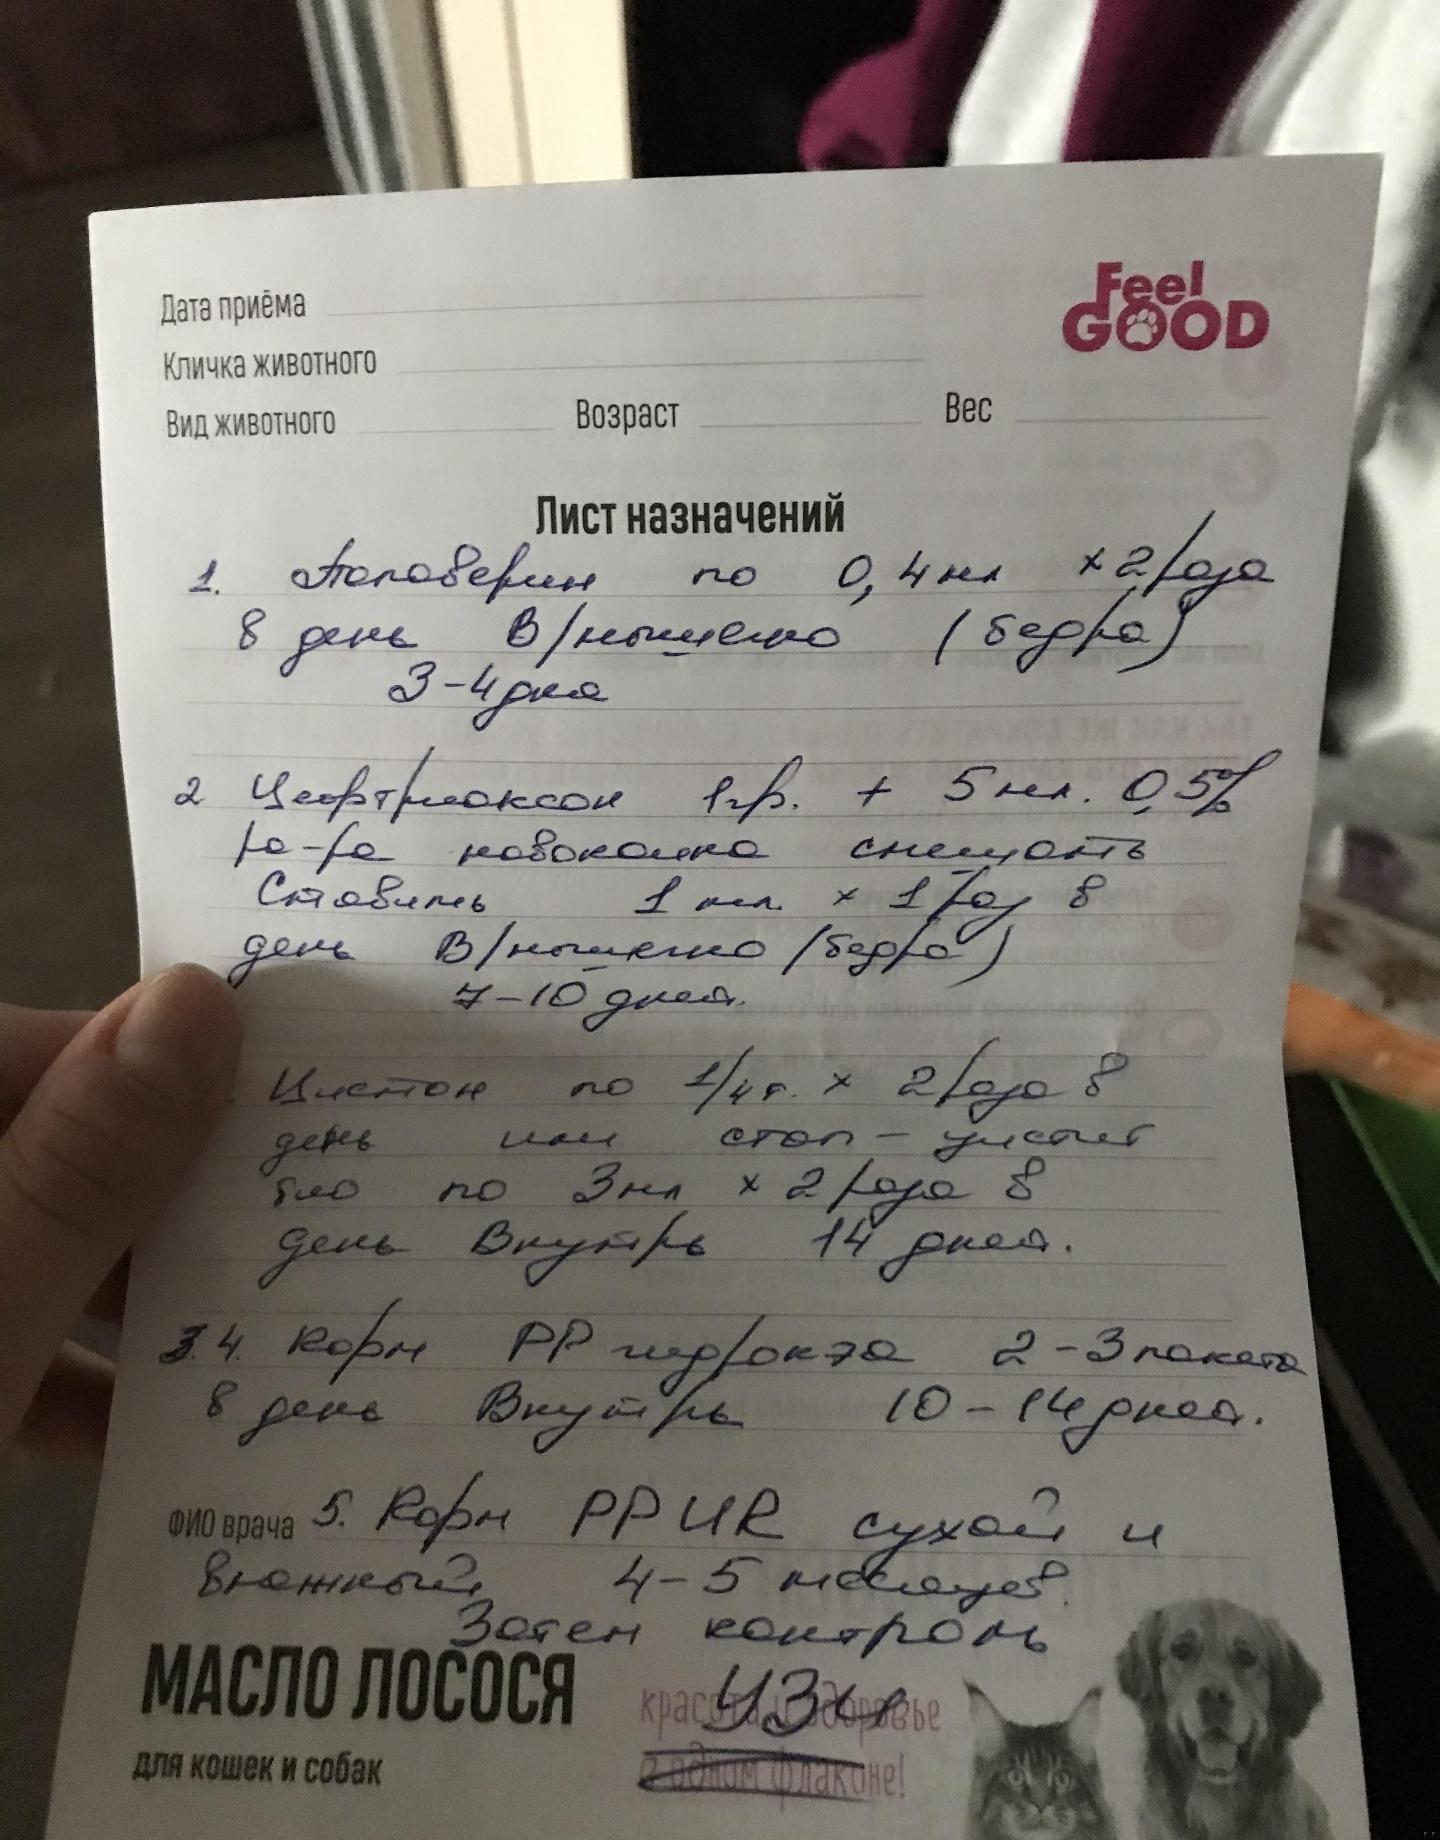 Feel
GOOD
Дата приёма
Кличка животного
Вид животного Возраст Вес
Лист назначений
1. Папаверин по 0,4 мл × 2 раза
в день В/мышечно (бедра)
3-4 дня
2 Цефтриаксон 1 гр. + 5 мл. 0,5%
ра-ра новокаина смешать
Ставить 1 мл × 1 раз в
день В/мышечно (бедра)
7-10 дней.
Цистон по 1/4 т. × 2 раза в
день или стоп-цистит
био по 3 мл × 2 раза в
день Внутрь 14 дней.
4. Корм PP гидроктэ 2-3 пакета
в день Внутрь 10-14 дней.
ФИО врача 5. Корм PP UR сухой и
влажный 4-5 месяцев.
Затем контроль
УЗИ
МАСЛО ЛОСОСЯ
для кошек и собак
красота и здоровье
в одном флаконе!